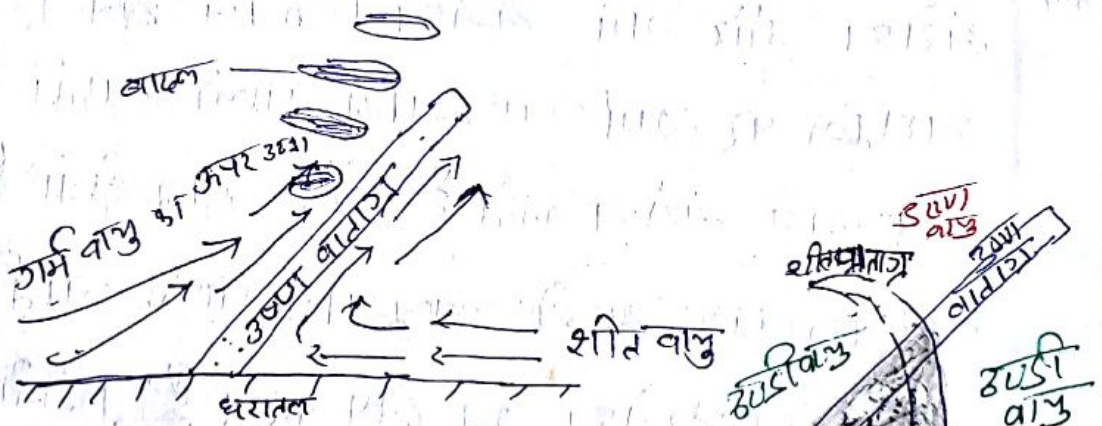 बादल
गर्म वायु का ऊपर उठना
उष्ण वाताग्र
शीत वायु
धरातल
उष्ण
वायु
शीतवाताग्र
उष्ण
वाताग्र
ठण्डी वायु
ठण्डी
वायु